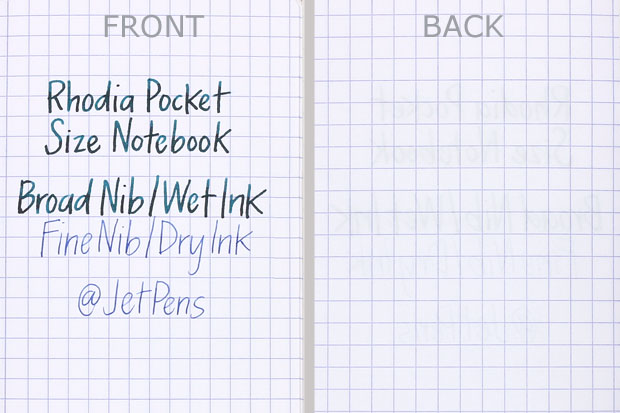 FRONT
Rhodia Pocket
Size Notebook
Broad Nib/Wet Ink
Fine Nib/Dry Ink
@JetPens
BACK